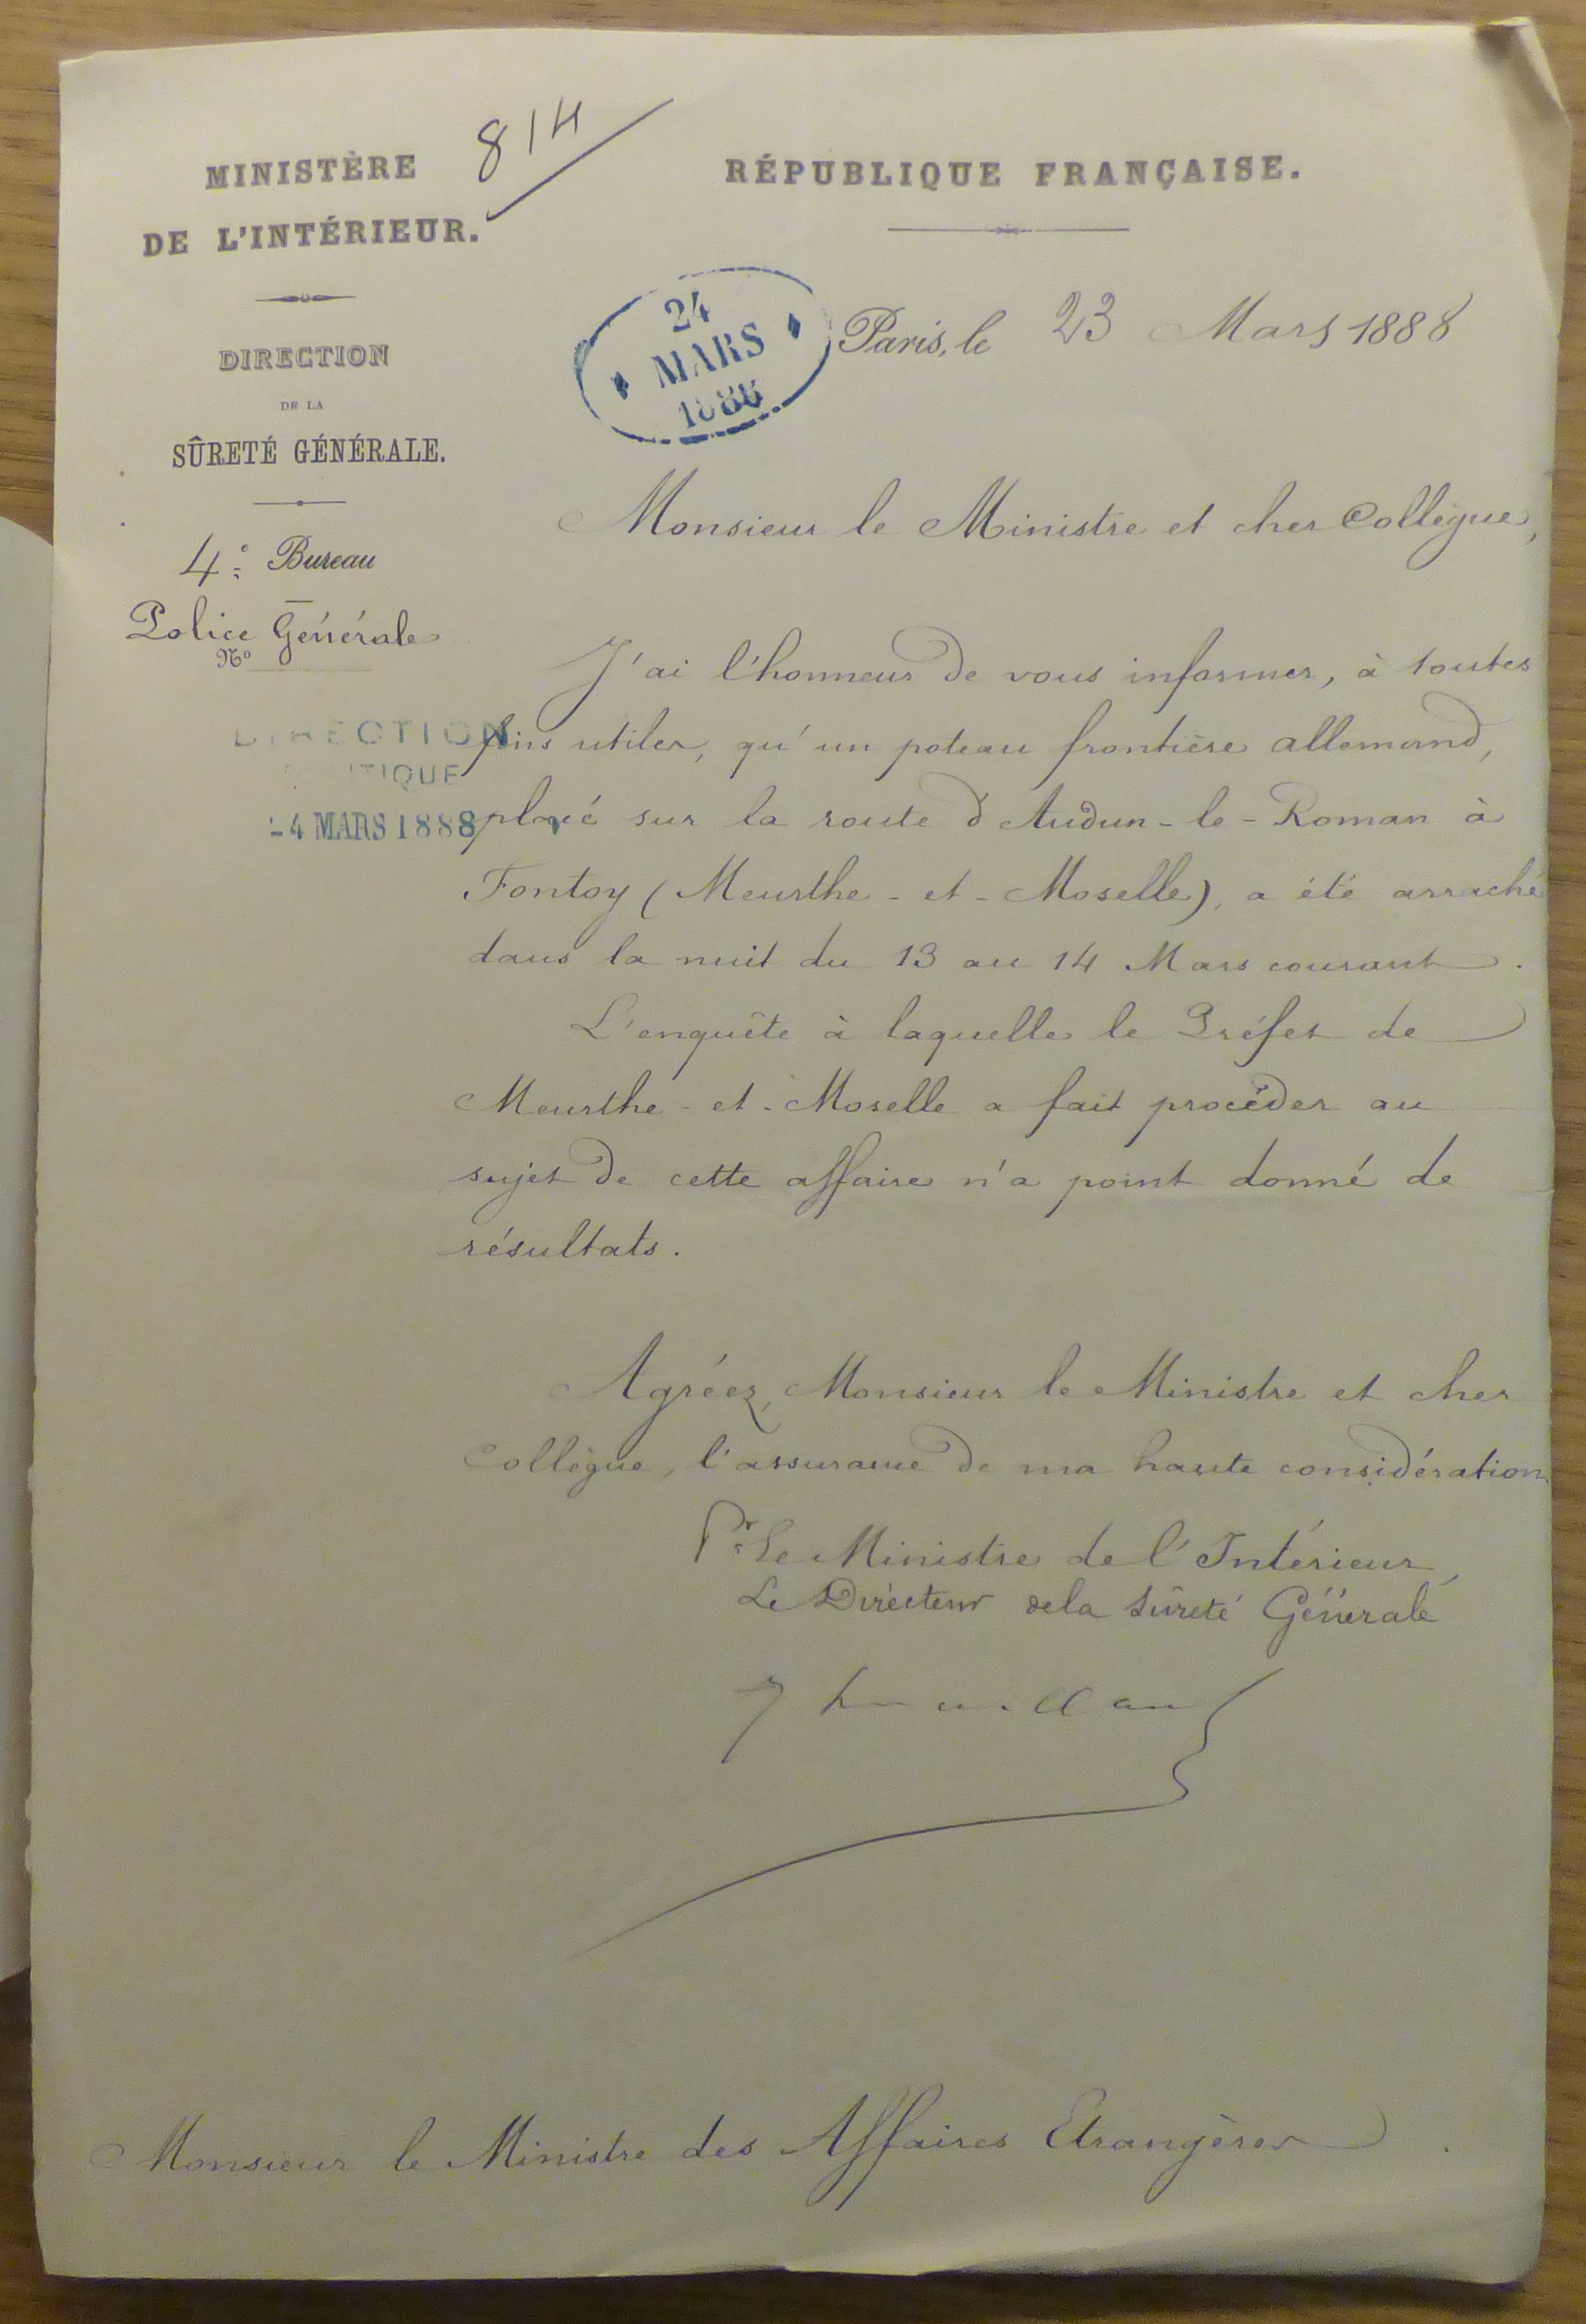 814
MINISTÈRE
DE L'INTÉRIEUR.
DIRECTION
DE LA
SÛRETÉ GÉNÉRALE.
4e Bureau
Police Générale
No
RÉPUBLIQUE FRANÇAISE.
24
MARS
1888
Paris, le 23 Mars 1888
Monsieur le Ministre et cher Collègue,
DIRECTION
24 MARS 1888
J'ai l'honneur de vous informer, à toutes
fins utiles, qu'un poteau frontière allemand,
placé sur la route d'Audun-le-Roman à
Fontoy (Meurthe-et-Moselle), a été arraché
dans la nuit du 13 au 14 Mars courant.
L'enquête à laquelle le Préfet de
Meurthe-et-Moselle a fait procéder au
sujet de cette affaire n'a point donné de
résultats.
Agréez, Monsieur le Ministre et cher
Collègue, l'assurance de ma haute considération.
Pr Le Ministre de l'Intérieur,
Le Directeur de la Sûreté Générale
Monsieur le Ministre des Affaires Etrangères.